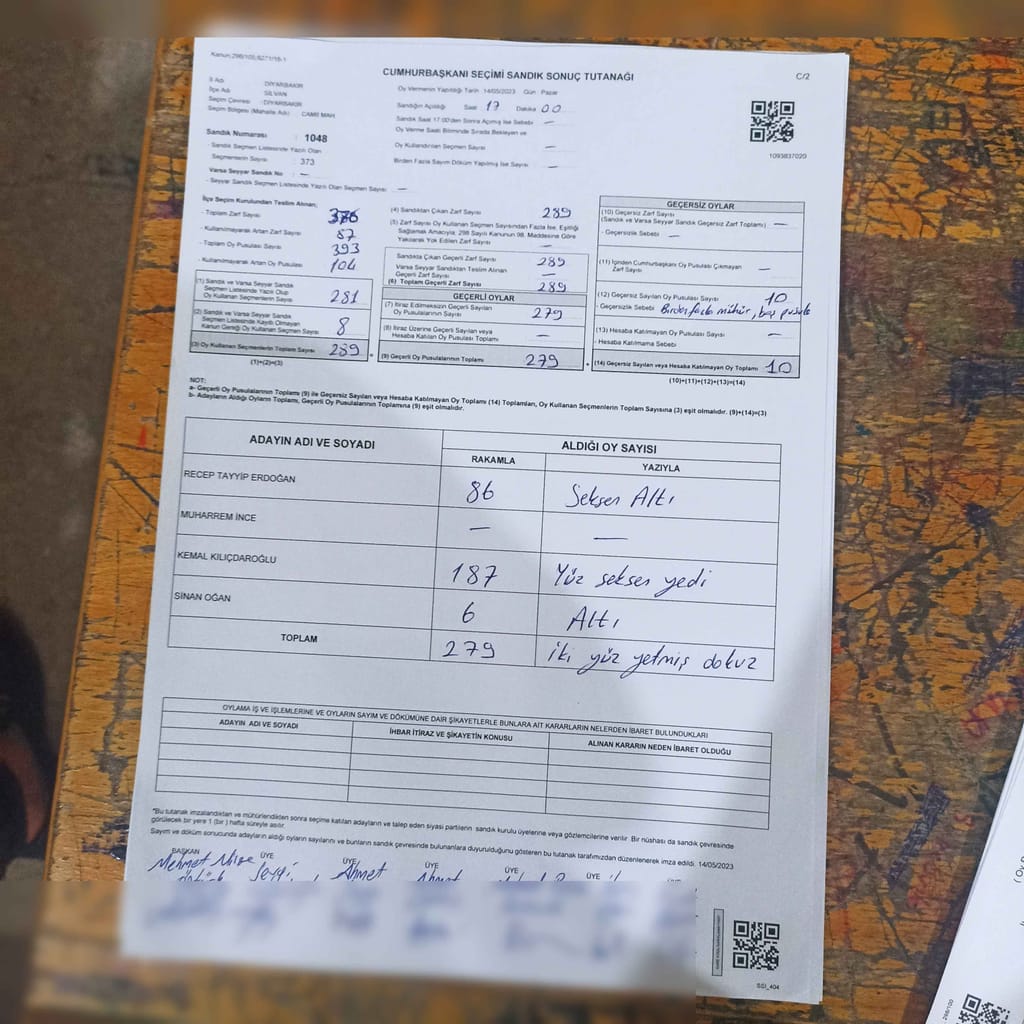 Kanun:298/105,6271/15-1
CUMHURBAŞKANI SEÇİMİ SANDIK SONUÇ TUTANAĞI
C/2
İl Adı : DİYARBAKIR
İlçe Adı : SİLVAN
Seçim Çevresi : DİYARBAKIR
Seçim Bölgesi (Mahalle Adı) : CAMİİ MAH
Sandık Numarası : 1048
- Sandık Seçmen Listesinde Yazılı Olan
Seçmenlerin Sayısı : 373
Varsa Seyyar Sandık No : —
- Seyyar Sandık Seçmen Listesinde Yazılı Olan Seçmen Sayısı : —
Oy Vermenin Yapıldığı Tarih 14/05/2023 Gün Pazar
Sandığın Açıldığı Saat 17 Dakika 00
Sandık Saat 17:00'den Sonra Açılmış İse Sebebi —
Oy Verme Saati Bitiminde Sırada Bekleyen ve
Oy Kullandırılan Seçmen Sayısı —
Birden Fazla Sayım Döküm Yapılmış İse Sayısı —
1093837020
İlçe Seçim Kurulundan Teslim Alınan;
- Toplam Zarf Sayısı 376
- Kullanılmayarak Artan Zarf Sayısı 87
- Toplam Oy Pusulası Sayısı 393
- Kullanılmayarak Artan Oy Pusulası 104
(1) Sandık ve Varsa Seyyar Sandık
Seçmen Listesinde Yazılı Olup
Oy Kullanan Seçmenlerin Sayısı 281
(2) Sandık ve Varsa Seyyar Sandık
Seçmen Listesinde Kayıtlı Olmayan
Kanun Gereği Oy Kullanan Seçmen Sayısı 8
(3) Oy Kullanan Seçmenlerin Toplam Sayısı 289
(1)+(2)=(3)
(4) Sandıktan Çıkan Zarf Sayısı 289
(5) Zarf Sayısı Oy Kullanan Seçmen Sayısından Fazla İse, Eşitliği
Sağlamak Amacıyla; 298 Sayılı Kanunun 98. Maddesine Göre
Yakılarak Yok Edilen Zarf Sayısı —
Sandıkta Çıkan Geçerli Zarf Sayısı 289
Varsa Seyyar Sandıktan Teslim Alınan
Geçerli Zarf Sayısı —
(6) Toplam Geçerli Zarf Sayısı 289
GEÇERLİ OYLAR
(7) İtiraz Edilmeksizin Geçerli Sayılan
Oy Pusulalarının Sayısı 279
(8) İtiraz Üzerine Geçerli Sayılan veya
Hesaba Katılan Oy Pusulası Toplamı —
(9) Geçerli Oy Pusulalarının Toplamı 279
GEÇERSİZ OYLAR
(10) Geçersiz Zarf Sayısı
(Sandık ve Varsa Seyyar Sandık Geçersiz Zarf Toplamı) —
- Geçersizlik Sebebi —
(11) İçinden Cumhurbaşkanı Oy Pusulası Çıkmayan
Zarf Sayısı —
(12) Geçersiz Sayılan Oy Pusulası Sayısı 10
- Geçersizlik Sebebi Birden fazla mühür, boş pusula
(13) Hesaba Katılmayan Oy Pusulası Sayısı —
- Hesaba Katılmama Sebebi
(14) Geçersiz Sayılan veya Hesaba Katılmayan Oy Toplamı 10
(10)+(11)+(12)+(13)=(14)
NOT:
a- Geçerli Oy Pusulalarının Toplamı (9) ile Geçersiz Sayılan veya Hesaba Katılmayan Oy Toplamı (14) Toplamları, Oy Kullanan Seçmenlerin Toplam Sayısına (3) eşit olmalıdır. (9)+(14)=(3)
b- Adayların Aldığı Oyların Toplamı, Geçerli Oy Pusulalarının Toplamına (9) eşit olmalıdır.
ADAYIN ADI VE SOYADI
ALDIĞI OY SAYISI
RAKAMLA YAZIYLA
RECEP TAYYİP ERDOĞAN 86 Seksen Altı
MUHARREM İNCE — —
KEMAL KILIÇDAROĞLU 187 Yüz seksen yedi
SİNAN OĞAN 6 Altı
TOPLAM 279 iki yüz yetmiş dokuz
OYLAMA İŞ VE İŞLEMLERİNE VE OYLARIN SAYIM VE DÖKÜMÜNE DAİR ŞİKAYETLERLE BUNLARA AİT KARARLARIN NELERDEN İBARET BULUNDUKLARI
ADAYIN ADI VE SOYADI İHBAR İTİRAZ VE ŞİKAYETİN KONUSU ALINAN KARARIN NEDEN İBARET OLDUĞU
"Bu tutanak imzalandıktan ve mühürlendikten sonra seçime katılan adayların ve talep eden siyasi partilerin sandık kurulu üyelerine veya gözlemcilerine verilir. Bir nüshası da sandık çevresinde
görülecek bir yere 1 (bir ) hafta süreyle asılır.
Sayım ve döküm sonucunda adayların aldığı oyların sayılarını ve bunların sandık çevresinde bulunanlara duyurulduğunu gösteren bu tutanak tarafımızdan düzenlenerek imza edildi. 14/05/2023
BAŞKAN ÜYE ÜYE ÜYE ÜYE ÜYE
Mehmet Ahmet Ahmet
SSİ_404